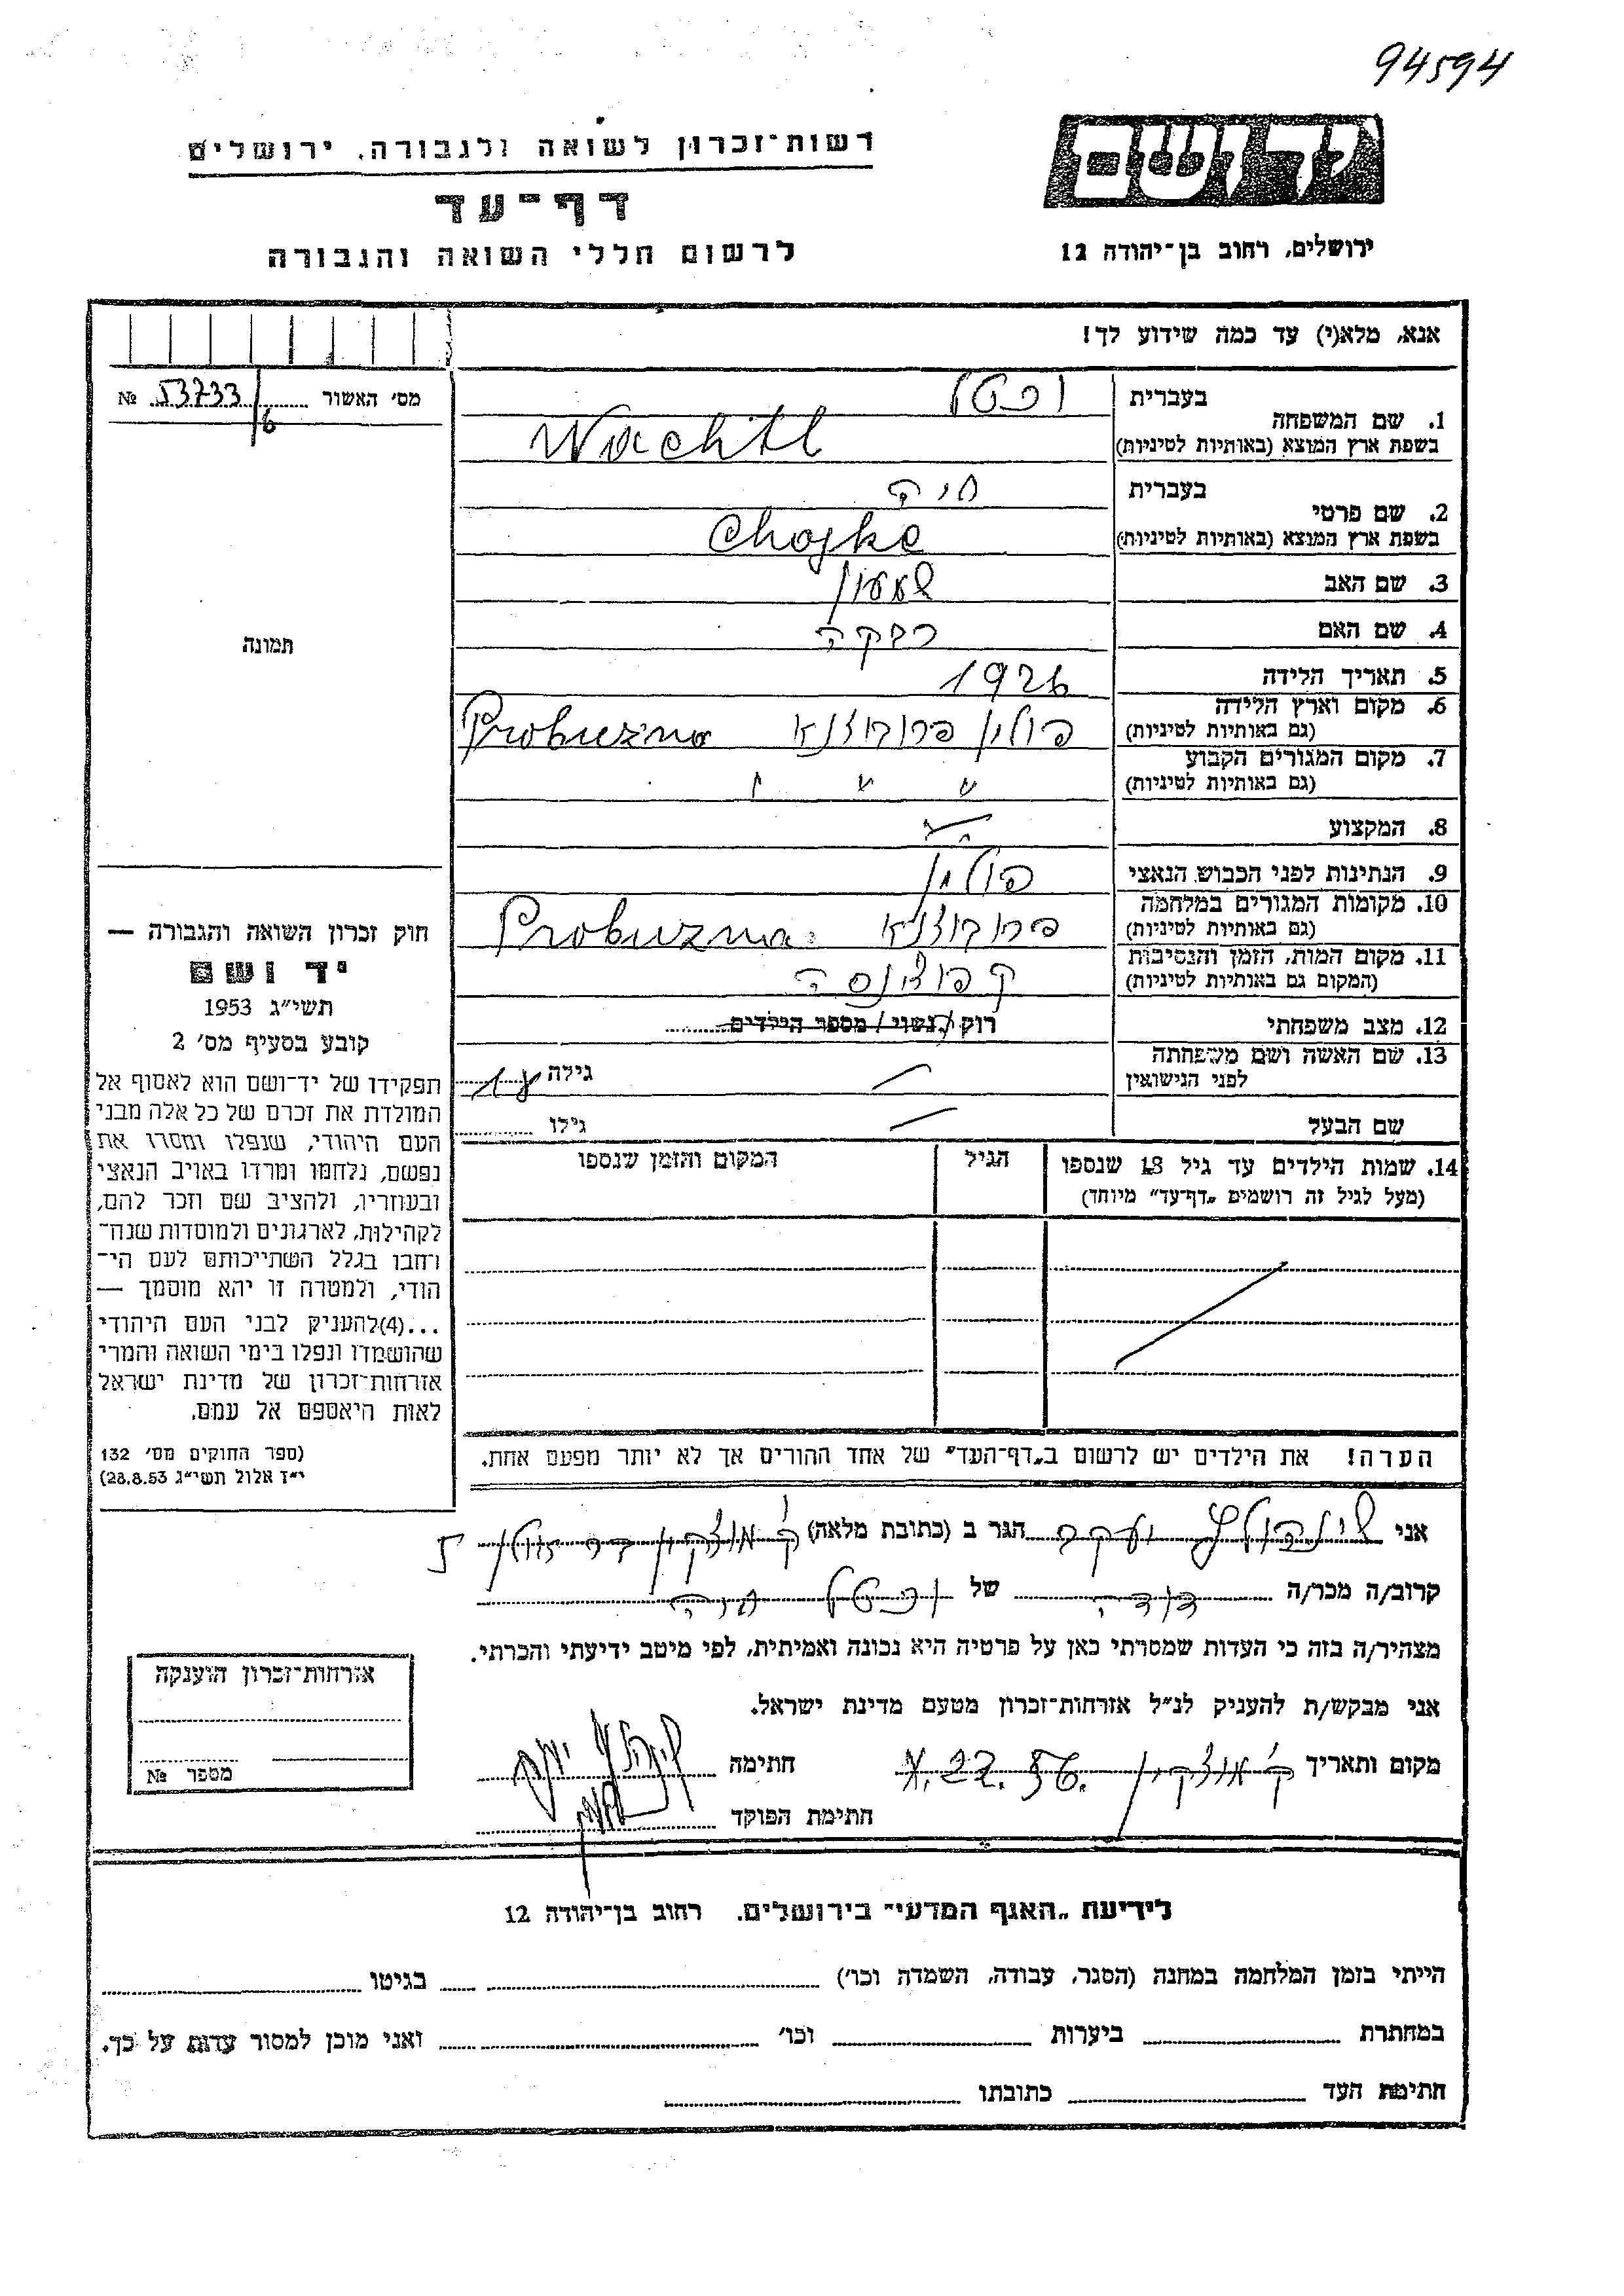 94594
יד ושם
רשות־זכרון לשואה ולגבורה, ירושלים
דף־עד
לרשום חללי השואה והגבורה
ירושלים, רחוב בן־יהודה 12
אנא, מלא(י) עד כמה שידוע לך!
מס׳ האשור № 53733/6
1. שם המשפחה
בעברית וכטל
בשפת ארץ המוצא (באותיות לטיניות) Wachtl
2. שם פרטי
בעברית חיה
בשפת ארץ המוצא (באותיות לטיניות) Chajke
3. שם האב שמעון
4. שם האם רבקה
5. תאריך הלידה 1926
6. מקום וארץ הלידה (גם באותיות לטיניות) פולין פרובוזנא Probuzna
7. מקום המגורים הקבוע (גם באותיות לטיניות) " " "
8. המקצוע
9. הנתינות לפני הכבוש הנאצי פולין
10. מקומות המגורים במלחמה (גם באותיות לטיניות) פרובוזנא Probuzna
11. מקום המות, הזמן והנסיבות (המקום גם באותיות לטיניות)
12. מצב משפחתי רוק / נשוי / מספר הילדים
13. שם האשה ושם משפחתה לפני הנישואין גילה
שם הבעל גילו
14. שמות הילדים עד גיל 18 שנספו (מעל לגיל זה רושמים „דף־עד״ מיוחד)
הגיל
המקום והזמן שנספו
הערה! את הילדים יש לרשום ב„דף־העד״ של אחד ההורים אך לא יותר מפעם אחת.
תמונה
חוק זכרון השואה והגבורה —
יד ושם
תשי״ג 1953
קובע בסעיף מס׳ 2
תפקידו של יד־ושם הוא לאסוף אל
המולדת את זכרם של כל אלה מבני
העם היהודי, שנפלו ומסרו את
נפשם, נלחמו ומרדו באויב הנאצי
ובעוזריו, ולהציב שם וזכר להם,
לקהילות, לארגונים ולמוסדות שנח־
רחבו בגלל השתייכותם לעם הי־
הודי, ולמטרה זו יהא מוסמך —
...(4)להעניק לבני העם היהודי
שהושמדו ונפלו בימי השואה והמרי
אזרחות־זכרון של מדינת ישראל
לאות היאספם אל עמם.
(ספר החוקים מס׳ 132
י״ז אלול תשי״ג 28.8.53)
אני יעקב הגר ב (כתובת מלאה) ק׳ מוצקין
קרוב/ה מכר/ה דודה של וכטל חיה
מצהיר/ה בזה כי העדות שמסרתי כאן על פרטיה היא נכונה ואמיתית, לפי מיטב ידיעתי והכרתי.
אני מבקש/ת להעניק לנ״ל אזרחות־זכרון מטעם מדינת ישראל.
מקום ותאריך ק׳ מוצקין חתימה
חתימת הפוקד
אזרחות־זכרון הוענקה
מספר №
לידיעת „האגף המדעי״ בירושלים. רחוב בן־יהודה 12
הייתי בזמן המלחמה במחנה (הסגר, עבודה, השמדה וכו׳) בגיטו
במחתרת ביערות וכו׳ ואני מוכן למסור עדות על כך.
חתימת העד כתובתו